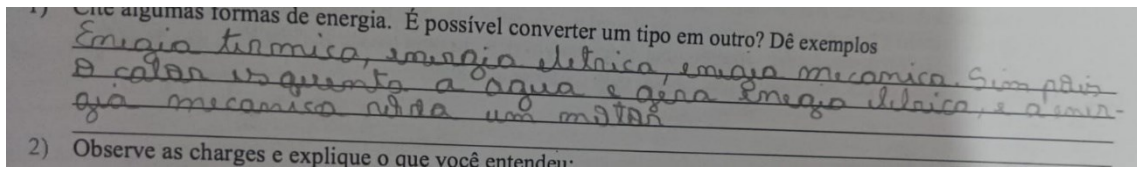 1) Cite algumas formas de energia. É possível converter um tipo em outro? Dê exemplos
Enegia tirmica, energia eletrica, enegia mecanica. Sim pois
O calor esquenta a agua e gera Enegia eletrica, e a ener-
gia mecanica um motor
2) Observe as charges e explique o que você entendeu: